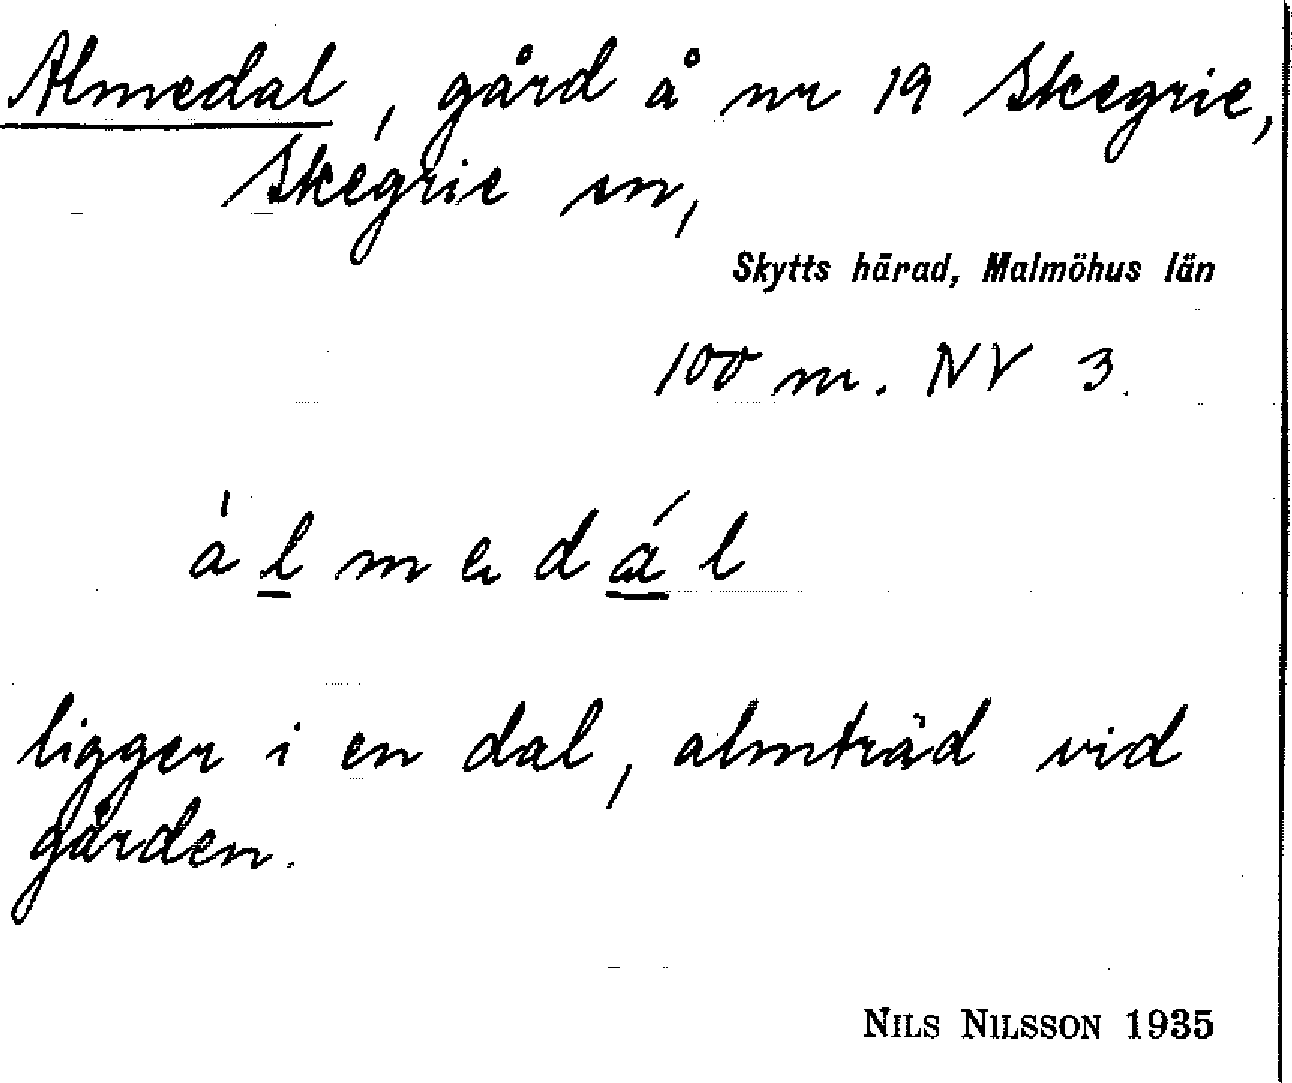 Almedal, gård å nr 19 Skegrie,
Skegrie sn,
Skytts härad, Malmöhus län
100 m. NV 3.
àlmedál
ligger i en dal, almträd vid
gården.
NILS NILSSON 1935